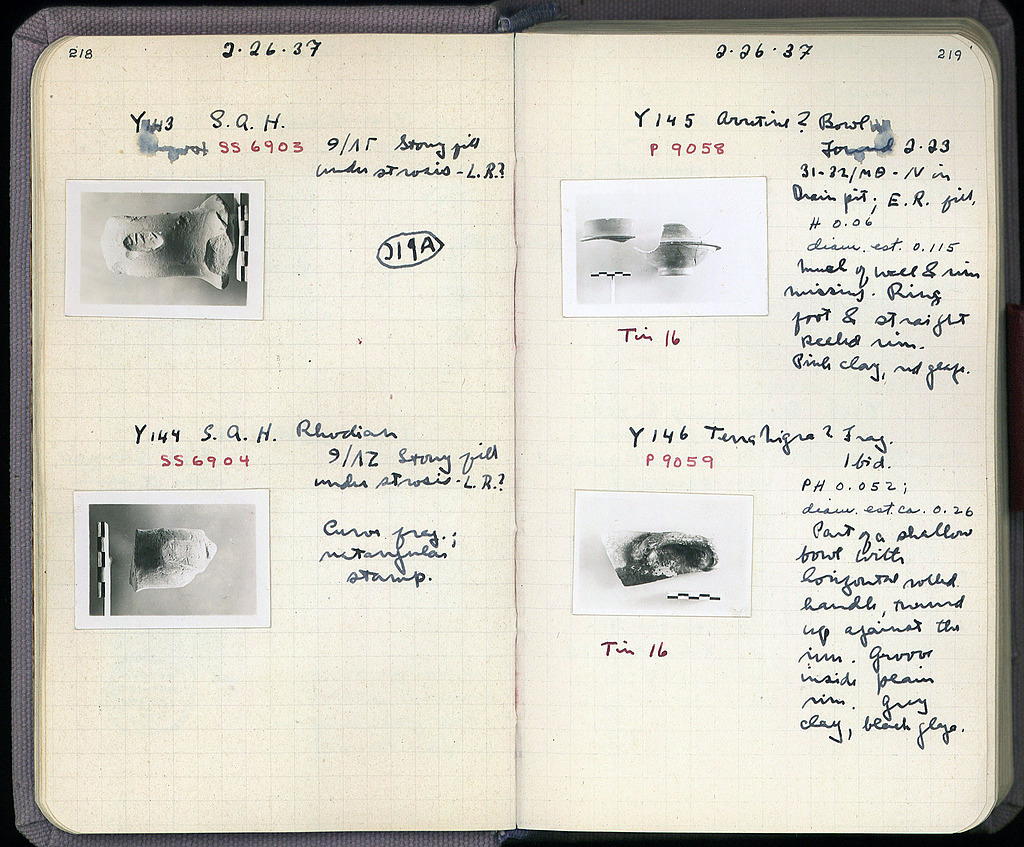 218
2·26·37
Y143 S.A.H.
SS 6903 9/ΛΓ Stony fill
under strosis - L.R.?
Y144 S.A.H. Rhodian
SS 6904 9/ΛΖ Stony fill
under strosis - L.R.?
Curve frag.;
rectangular
stamp.
2·26·37
219
Y145 Arretine? Bowl
P 9058 Found 2·23
31-32/ΜΘ - N in
Drain pit; E.R. fill.
H 0.06
diam. est. 0.115
Much of wall & rim
missing. Ring
foot & straight
reeled rim.
Pink clay, red glaze.
Tin 16
Y146 Terra Nigra? Frag.
P 9059 Ibid.
PH 0.052;
diam. est. ca. 0.26
Part of a shallow
bowl with
horizontal rolled
handle, turned
up against the
rim. Groove
inside plain
rim. Grey
clay, black glaze.
Tin 16